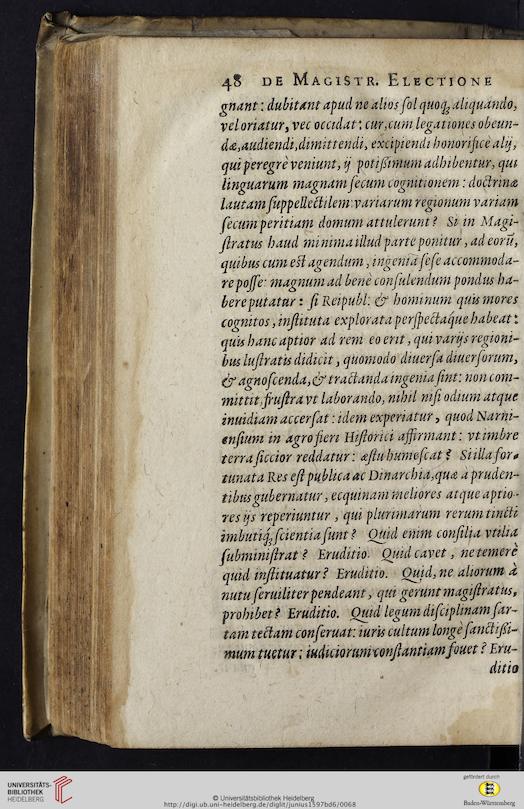 48 DE MAGISTR. ELECTIONE
gnant: dubitant apud ne alios ſol quoq;, aliquando,
vel oriatur, vec occidat: cur, cum legationes obeun-
dæ, audiendi, dimittendi, excipiendi honorifice alij,
qui peregrè veniunt, ij potißimum adhibentur, qui
linguarum magnam ſecum cognitionem: doctrinæ
lautam ſuppellectilem: variarum regionum variam
ſecum peritiam domum attulerunt? Si in Magi-
ſtratus haud minima illud parte ponitur, ad eorũ,
quibus cum eſt agendum, ingenia ſeſe accommoda-
re poſſe: magnum ad benè conſulendum pondus ha-
bere putatur: ſi Reipubl: & hominum quis mores
cognitos, inſtituta explorata perſpectáque habeat:
quis hanc aptior ad rem eo erit, qui varijs regioni-
bus luſtratis didicit, quomodo diuerſa diuerſorum,
& agnoſcenda, & tractanda ingenia ſint: non com-
mittit, fruſtra vt laborando, nihil niſi odium atque
inuidiam accerſat: idem experiatur, quod Narni-
enſium in agro fieri Hiſtorici affirmant: vt imbre
terra ſiccior reddatur: æſtu humeſcat? Si illa for-
tunata Res eſt publica ac Dinarchia, quæ à pruden-
tibus gubernatur, ecquinam meliores atque aptio-
res ijs reperiuntur, qui plurimarum rerum tincti
imbutiq; ſcientia ſunt? Quid enim conſilia vtilia
ſubminiſtrat? Eruditio. Quid cavet, ne temerè
quid inſtituatur? Eruditio. Quid, ne aliorum à
nutu ſeruiliter pendeant, qui gerunt magiſtratus,
prohibet? Eruditio. Quid legum diſciplinam ſar-
tam tectam conſeruat: iuris cultum longè ſanctißi-
mum tuetur: iudiciorum conſtantiam fouet? Eru-
ditio
UNIVERSITÄTS-
BIBLIOTHEK
HEIDELBERG
© Universitätsbibliothek Heidelberg
http://digi.ub.uni-heidelberg.de/diglit/junius1597bd6/0068
gefördert durch
Baden-Württemberg